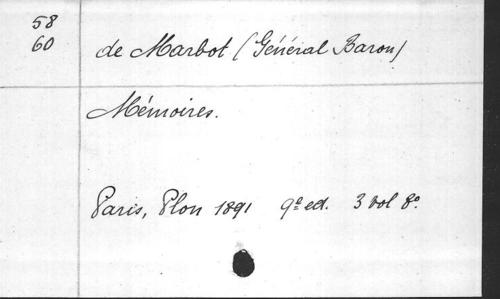 58
60
de Marbot (Général Baron)
Mémoires.
Paris, Plon 1891 9e ed. 3 vol 8o.